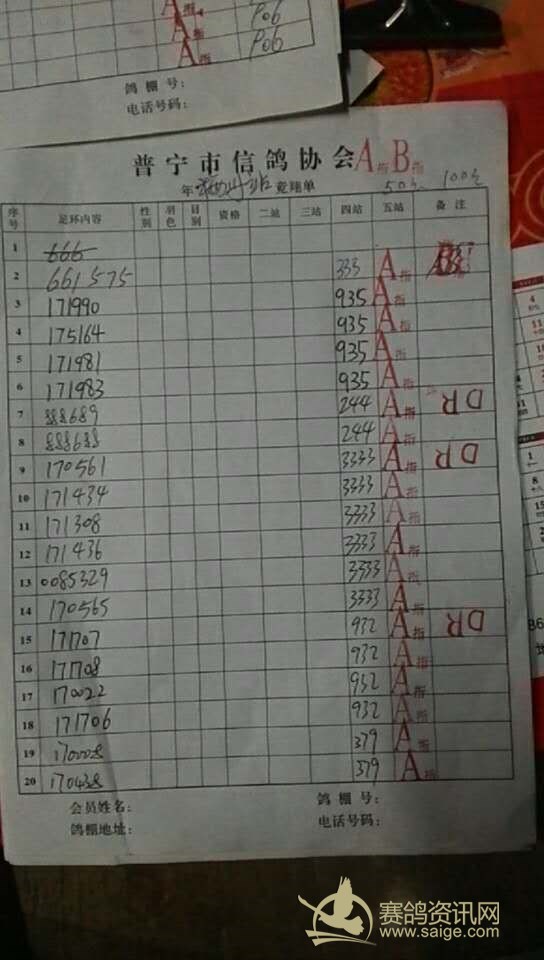 A指 P06
A指 P06
鸽 棚 号：
电话号码：
普宁市信鸽协会 A指 B指
年 竞翔单 50元 100元
序号 足环内容 性别 羽色 目别 资格 二站 三站 四站 五站 备注
1 666
2 661575 333 A指
3 171990 935 A指
4 175164 935 A指
5 171981 935 A指
6 171983 935 A指
7 888689 244 A指 DR
8 888688 244 A指
9 170561 3333 A指 DR
10 171434 3333 A指
11 171308 3333 A指
12 171436 3333 A指
13 0085329 3333 A指
14 170565 3333 A指
15 171707 932 A指 DR
16 171708 932 A指
17 170022 932 A指
18 171706 932 A指
19 170008 379 A指
20 170438 379 A指
会员姓名： 鸽 棚 号：
鸽棚地址： 电话号码：
赛鸽资讯网
www.saige.com